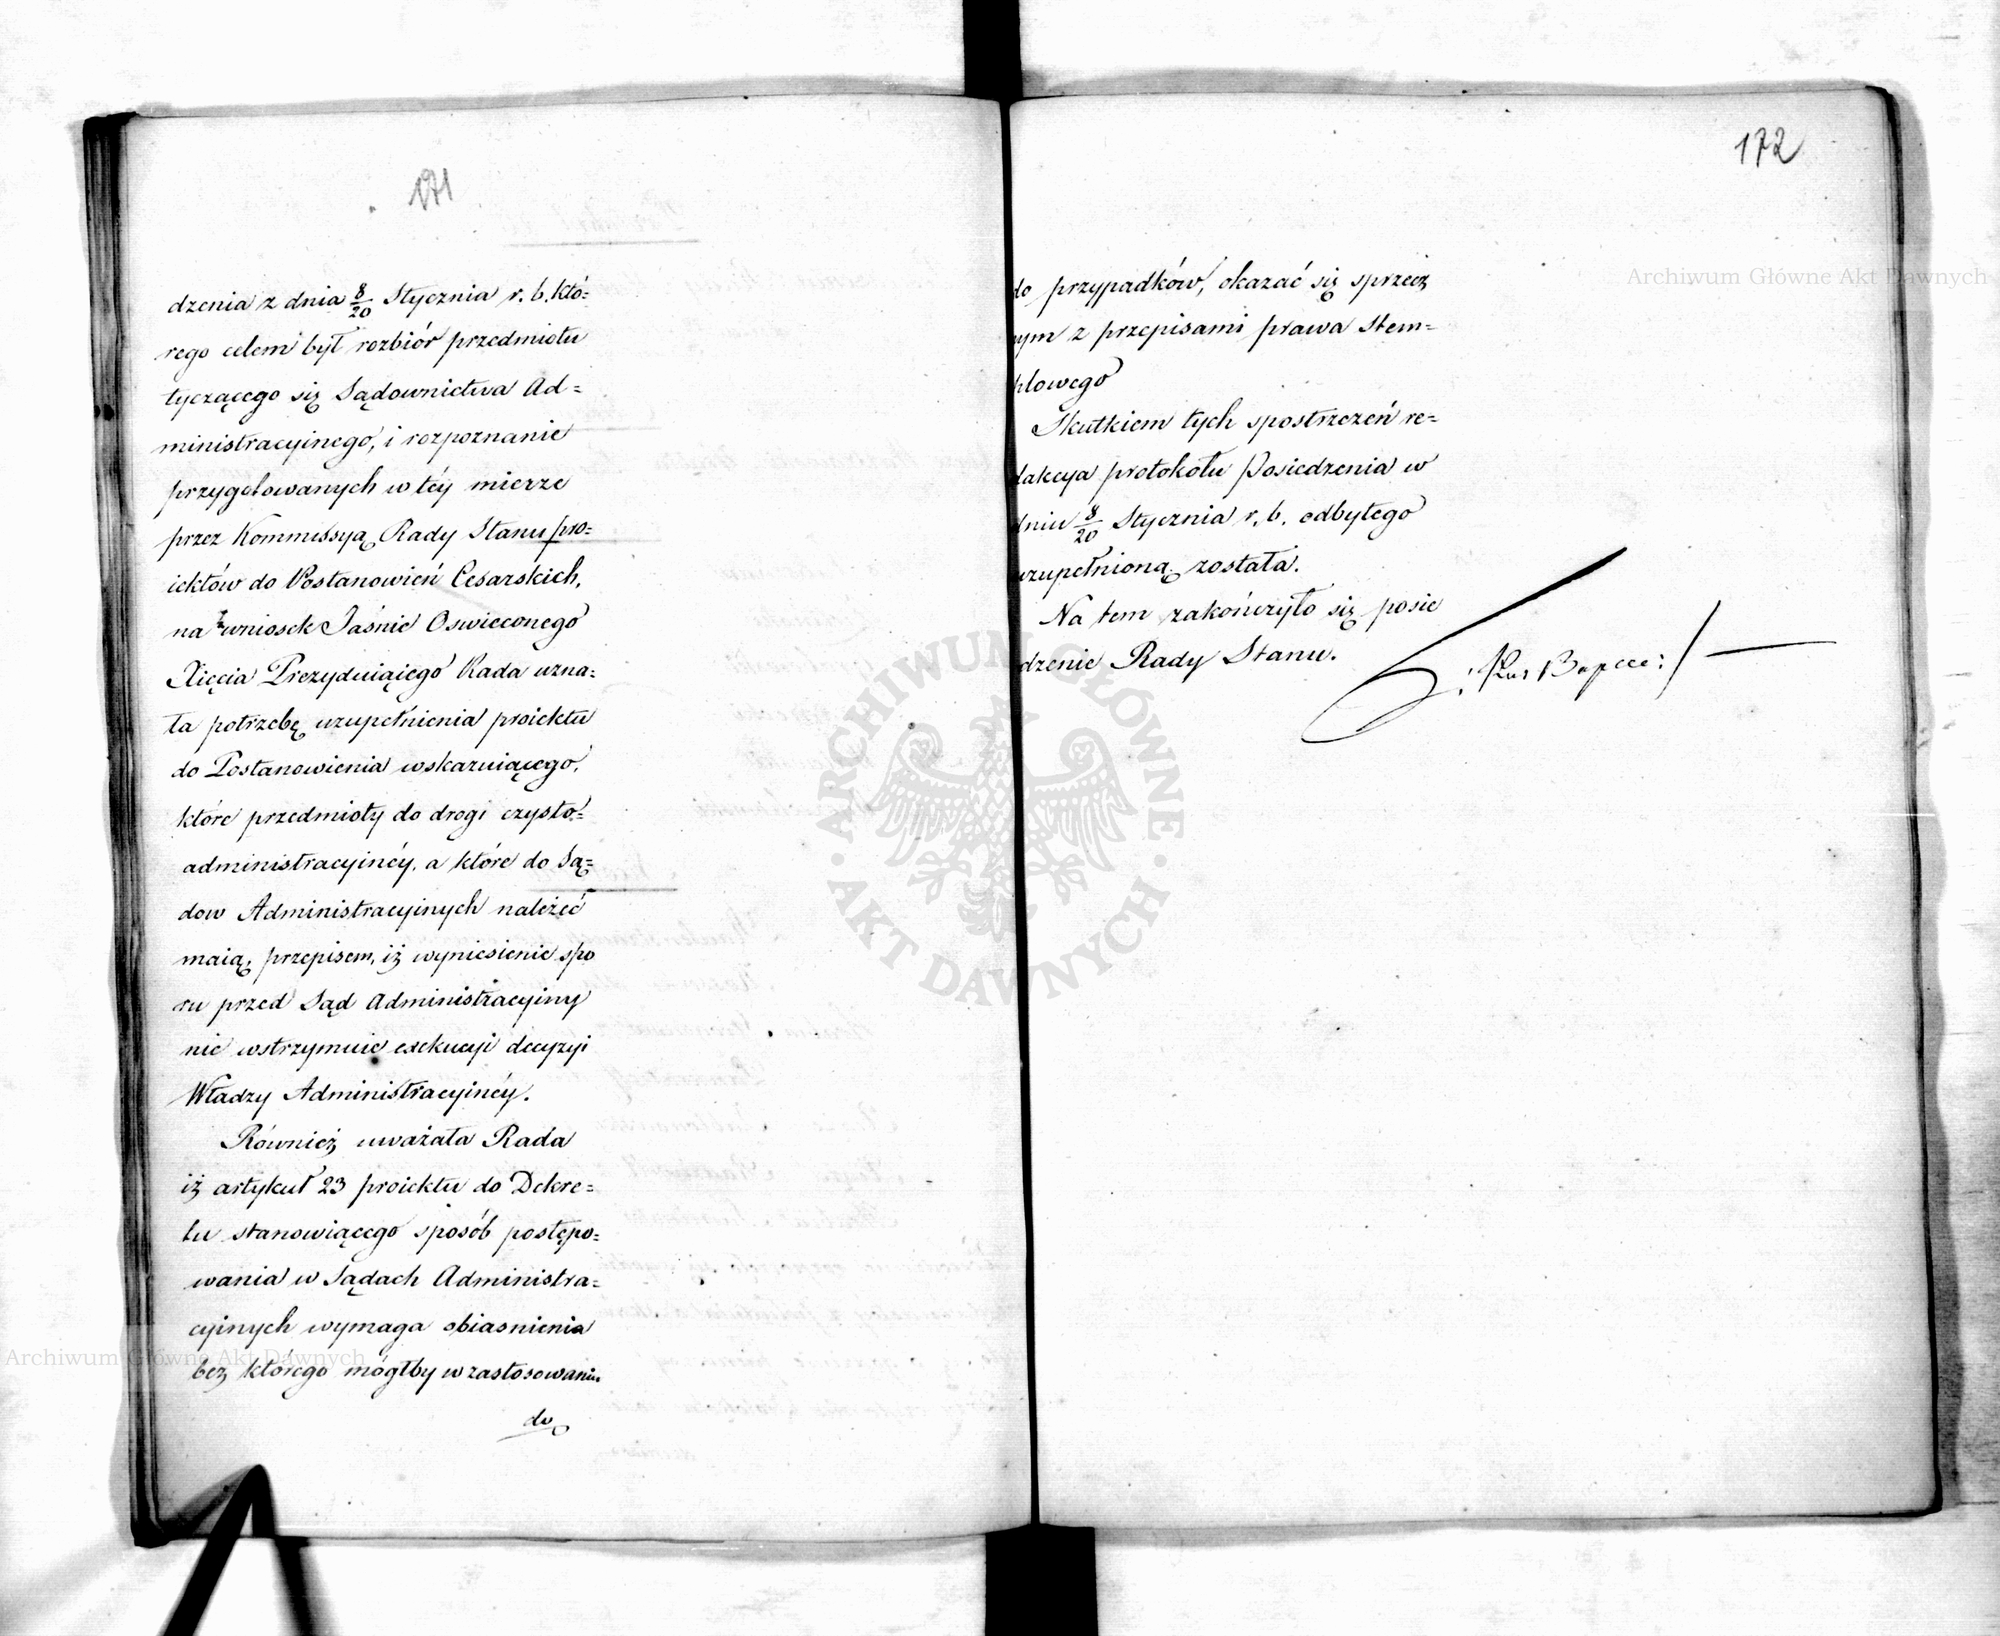 171
dzenia z dnia 8/20 Stycznia r. b. któ=
rego celem był rozbiór przedmiotu
tyczącego się Sądownictwa Ad=
ministracyinego, i rozpoznanie
przygotowanych w téy mierze
przez Kommissyą Rady Stanu pro=
iektów do Postanowień Cesarskich,
na wniosek Jaśnie Oswieconego
Xięcia Prezyduiącego Rada uzna=
ła potrzebę uzupełnienia proiektu
do Postanowienia wskazuiącego,
które przedmioty do drogi czysto=
administracyinéy, a które do Są=
dow Administracyinych należeć
maią, przepisem, iż wyniesienie spo
ru przed Sąd Administracyiny
nie wstrzymuie exekucyi decyzyi
Władzy Administracyinéy.
Również uważała Rada
iż artykuł 23 proiektu do Dekre=
tu stanowiącego sposób postępo=
wania w Sądach Administra=
cyinych wymaga obiasnienia
bez którego mógłby w zastosowaniu
do
172
do przypadków, okazać się sprzecz
nym z przepisami prawa Stem=
plowego
Skutkiem tych spostrzeżeń re=
dakcya protokołu Posiedzenia w
dniu 8/20 Stycznia r. b. odbytego
uzupełnioną została.
Na tem zakończyło się posie
dzenie Rady Stanu.
Archiwum Główne Akt Dawnych
Archiwum Główne Akt Dawnych
ARCHIWUM GŁÓWNE · AKT DAWNYCH ·